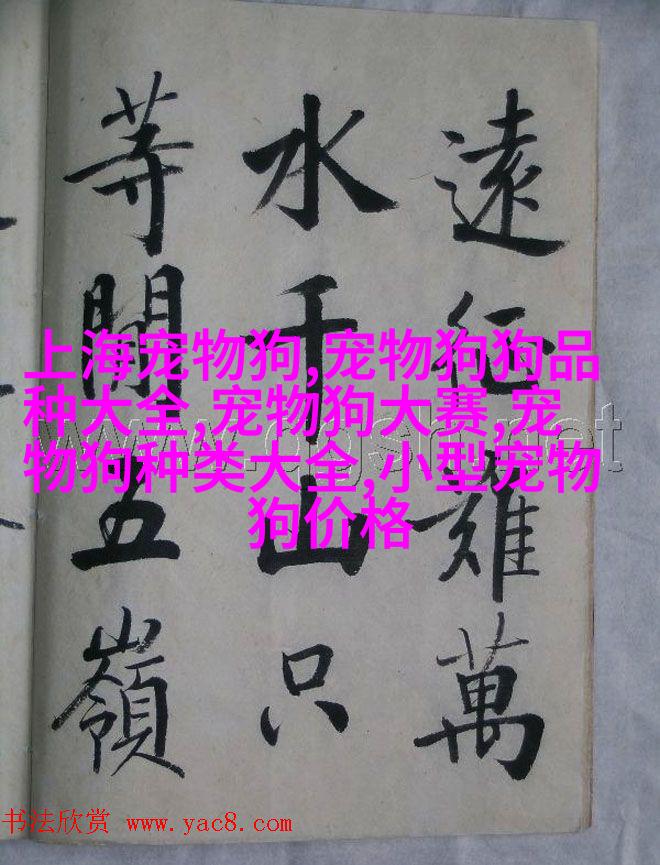 遠征難萬
水千山只
等五嶺
上海宠物狗,宠物狗狗品
种大全,宠物狗大赛,宠
物狗种类大全,小型宠物
狗价格
书法欣赏 www.yac8.com